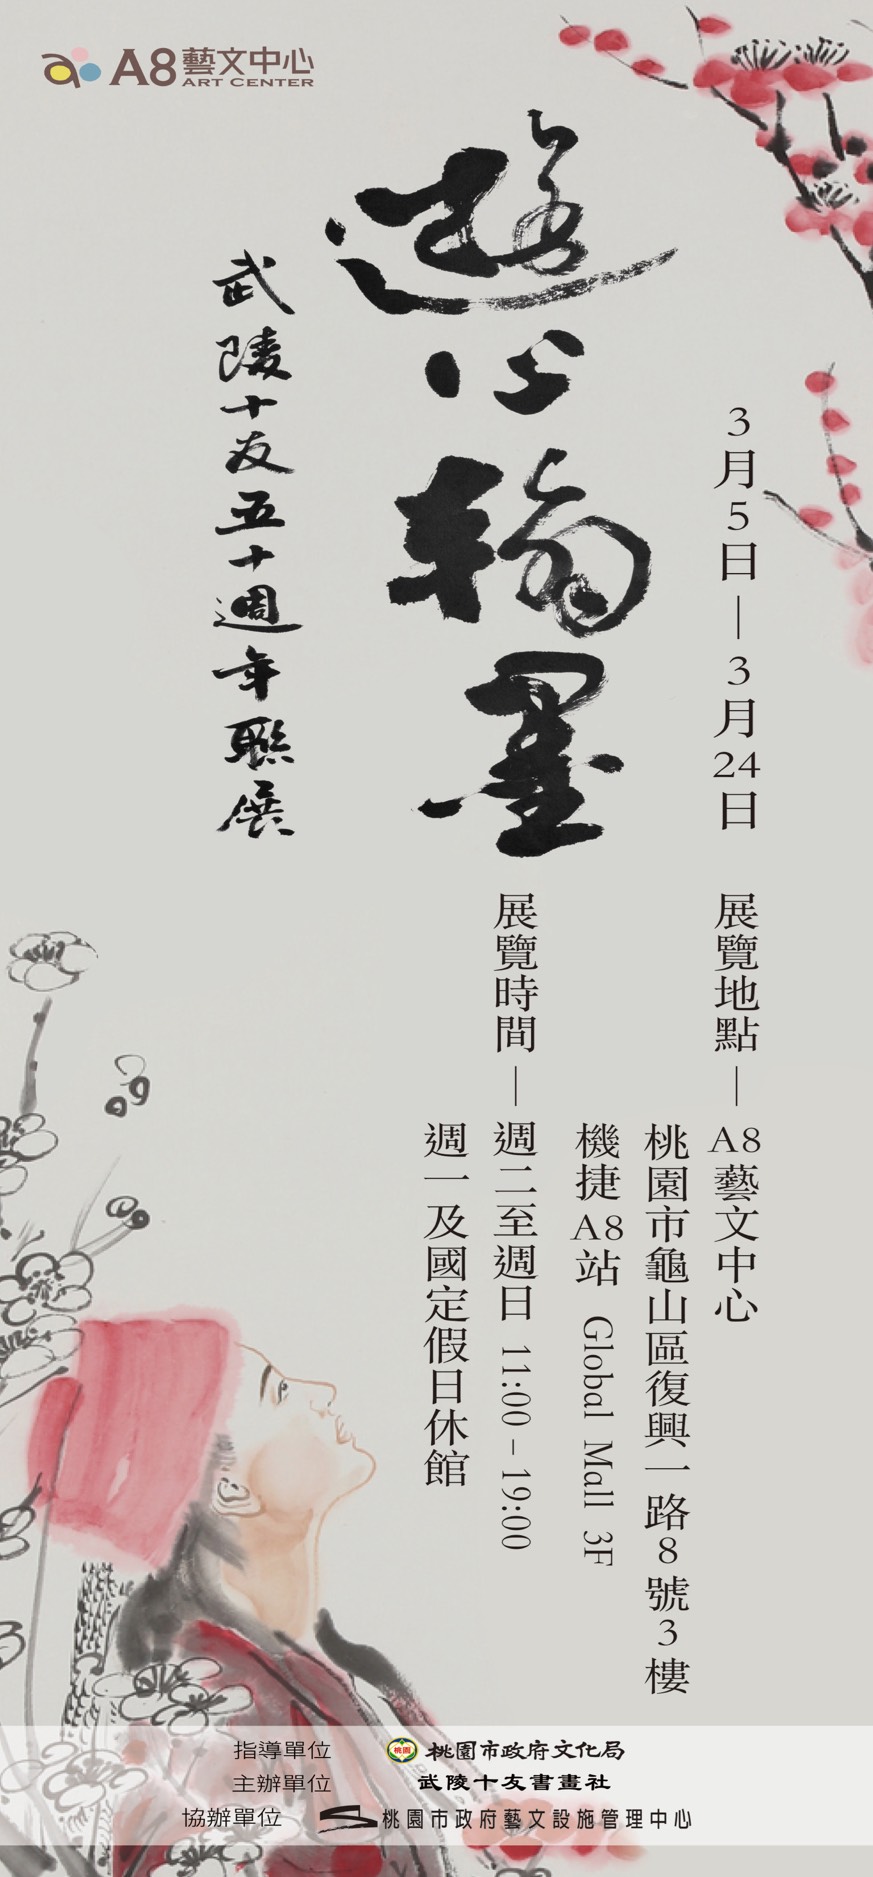 A8藝文中心
ART CENTER
遊心翰墨
武陵十友五十週年聯展
3月5日—3月24日
展覽地點—A8藝文中心
桃園市龜山區復興一路8號3樓
機捷A8站 Global Mall 3F
展覽時間—週二至週日 11:00 – 19:00
週一及國定假日休館
指導單位 桃園 桃園市政府文化局
主辦單位 武陵十友書畫社
協辦單位 桃園市政府藝文設施管理中心